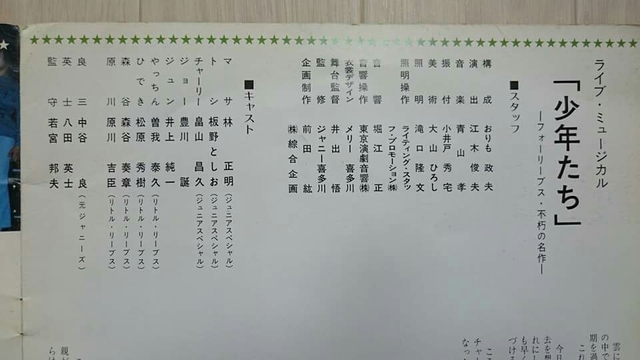 ライブ・ミュージカル
「少年たち」
―フォーリーブス・不朽の名作―
■スタッフ
構成 おりも政夫
演出 江木俊夫
音楽 青山孝
振付 小井戸秀宅
美術 大山ひろし
照明 滝口隆文
照明操作 ライティング・スタッフ・プロモーション㈱
音響 堀江正
音響操作 東京演劇音響㈱
衣裳デザイン メリー喜多川
舞台監督 井出悟
監修 ジャニー喜多川
企画制作 前田紘
㈱綜合企画
■キャスト
マサ 林正明(ジュニアスペシャル)
トシ 板野としお(ジュニアスペシャル)
チャーリー 畠山昌久(ジュニアスペシャル)
ジョー 豊川誕
ジュン 井上純一
やっちん 曽我泰久(リトル・リーブス)
ひでき 松原秀樹(リトル・リーブス)
森谷 森谷奏章(リトル・リーブス)
原川 原川吉臣(リトル・リーブス)
良三 中谷良(元ジャニーズ)
英士 八田英士
監守 若宮邦夫
雲に
の中で
期を過
これ
今日
去を想
れにし
も早く
づける
この
チャー
なっ
親が
らは